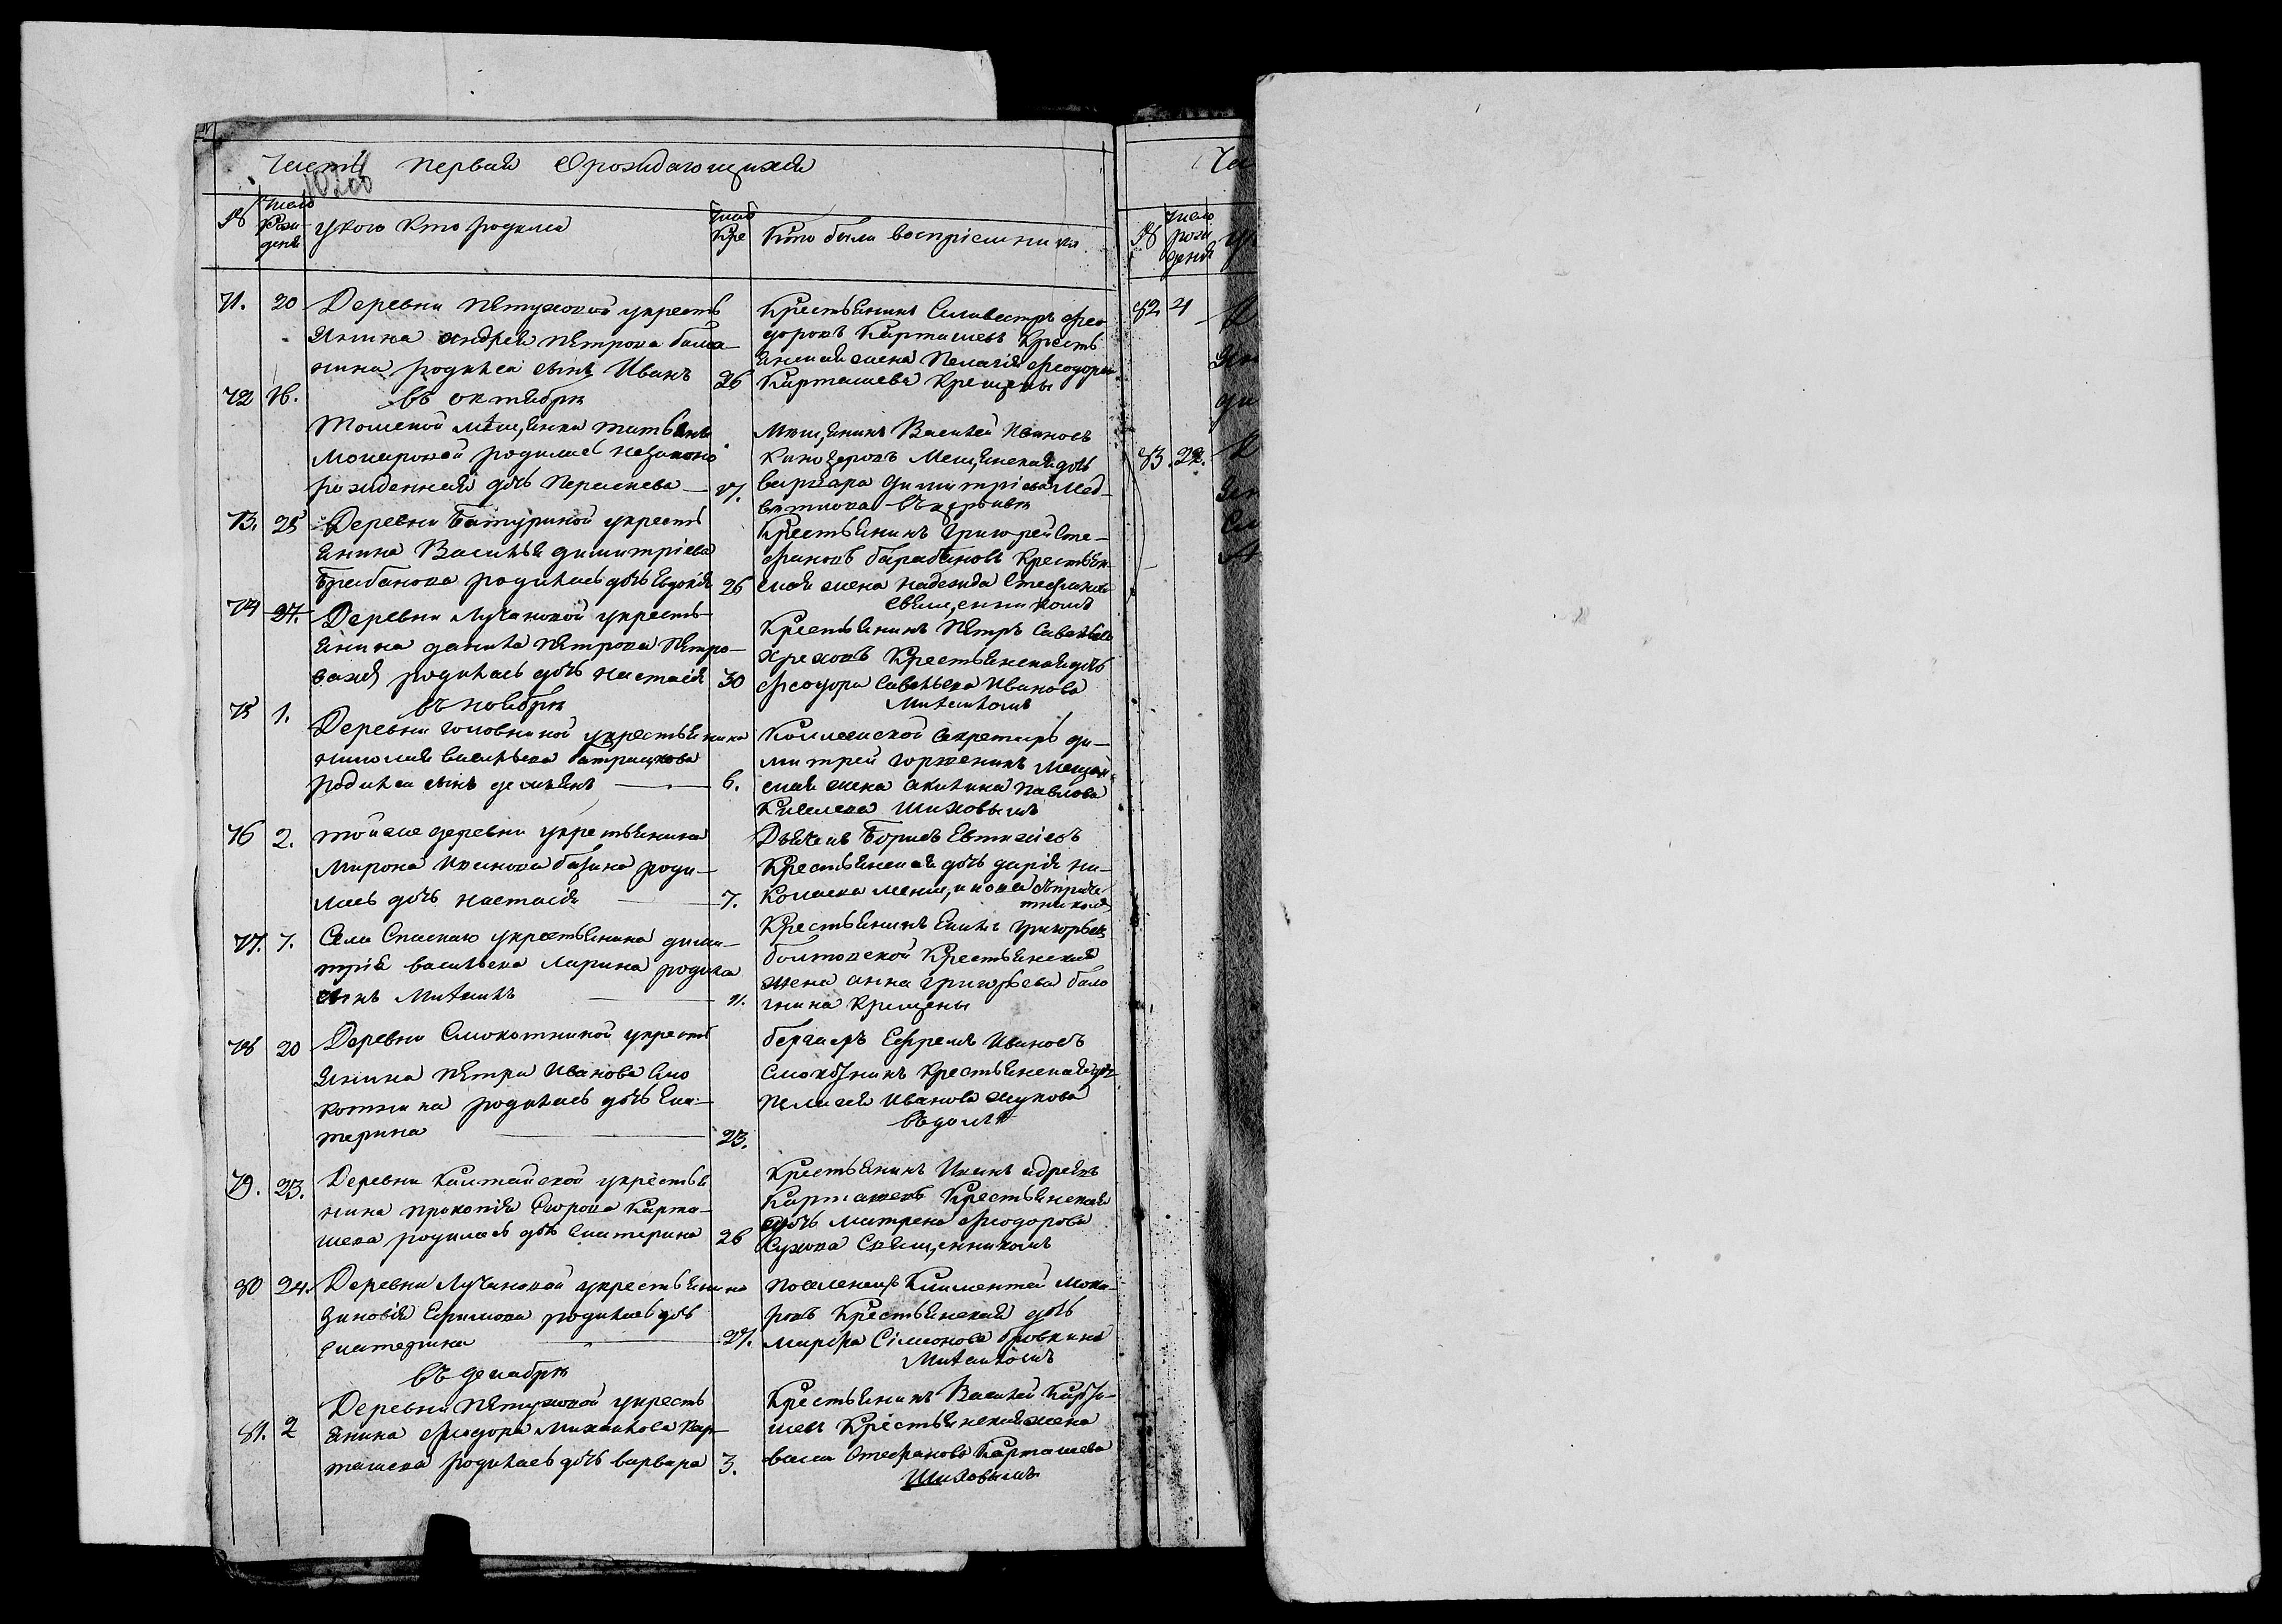 Часть первая О рождающихся
№ число рождения у кого кто родился число кре Кто были восприемники
71. 20 Деревни Петуховой у кресть
янина андрея Петрова бала-
нина родился сынъ Иванъ 26
Крестьянинъ Силивестръ Фео
доровъ Карташевъ Кресть
янская жена Пелагія Феодорова
Карташева Крещены
72 16. въ октябре
Томской мещанки татьяны
родилась незаконо
рожденная дочь Парасковья 17.
Мещанинъ Василей Ивановъ
Мещанская дочь
варвара Димитріева Мед-
въ церкви
73. 25 Деревни Батуриной у кресть
янина Василья димитріева
Барабанова родилась дочь Евдокія 26
Крестьянинъ Григорей Сте-
фановъ барабановъ Крестьян
ская жена надежда Стефанова
Священникомъ
74 27. Деревни Лучановой у кресть-
янина данила Петрова Петро-
родилась дочь Настасія 30
Крестьянинъ Петръ Савельевъ
Крестьянская дочь
Феодора Савельева Иванова
Михаиломъ
75 1. въ ноябре
Деревни головниной у крестьянина
николая васильева батрацкова
родился сынъ демьянъ 6.
Коллежской Секретарь ди-
митрей Мещан
ская жена акилина Павлова
Киселева Шиховымъ
76 2. той же деревни у крестьянина
Мирона Иванова базина роди-
лась дочь настасія 7.
Дьячекъ Борисъ Евтихіевъ
Крестьянская дочь дарія ни-
колаева
77. 7. Села Спаскаго у крестьянина дими-
трія васильева Ларина родился
сынъ Михаилъ 11.
Крестьянинъ Григорьевъ
болтовской Крестьянская
жена анна Григорьева бало
гнина Крещены
78 20 Деревни Смокотниной у кресть
янина Петра Иванова Смо
котнина родилась дочь Ека-
терина 23.
бергаеръ Ефремъ Ивановъ
Смокотнинъ Крестьянская дочь
Пелагея Иванова жукова
въ доме
79. 23. Деревни Калтайской у крестья
нина Прокопія Егорова Карта-
шева родилась дочь Екатерина 26
Крестьянинъ Иванъ
Карташевъ Крестьянская
дочь Матрена Феодорова
Сухова Священникомъ
80 24. Деревни Лучановой у крестьянина
Зиновія Ефимова родилась дочь
Екатерина 27.
Поселенецъ Климентей Мока-
ровъ Крестьянская дочь
Марфа Сімонова бровкина
Михаиломъ
въ декабре
81. 2 Деревни Петуховой у кресть
янина Феодора Михайлова Кар-
ташева родилась дочь варвара 3.
Крестьянинъ Василей Карта-
шевъ Крестьянская жена
Стефанова Карташева
Шиховымъ
Ча
№ число рождения у
82 4
83. 22.